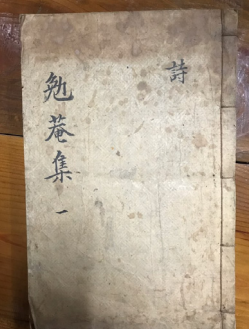 勉菴集 一
詩